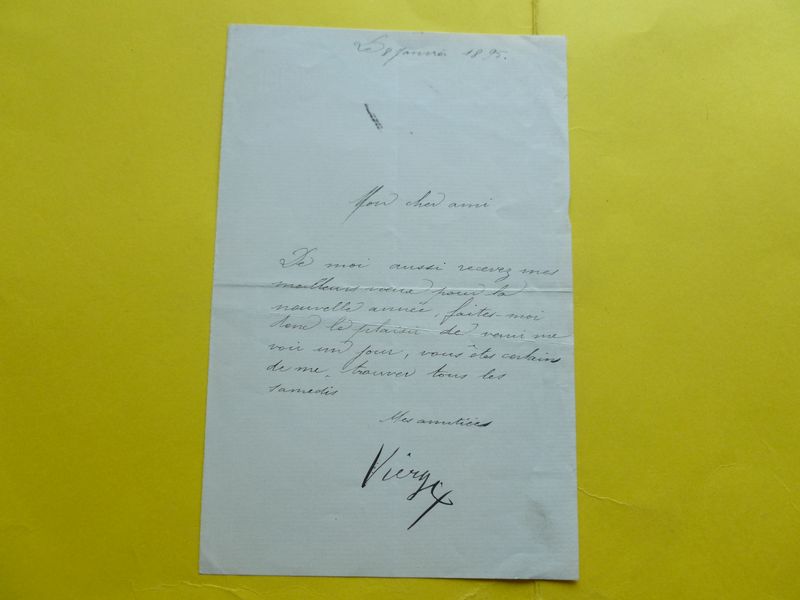 Le 8 Janvier 1895.
Mon cher ami
De moi aussi recevez mes
meilleurs voeux pour la
nouvelle année, faites-moi
donc le plaisir de venir me
voir un jour, vous êtes certains
de me trouver tous les
samedis
Mes amitiées
Vierge